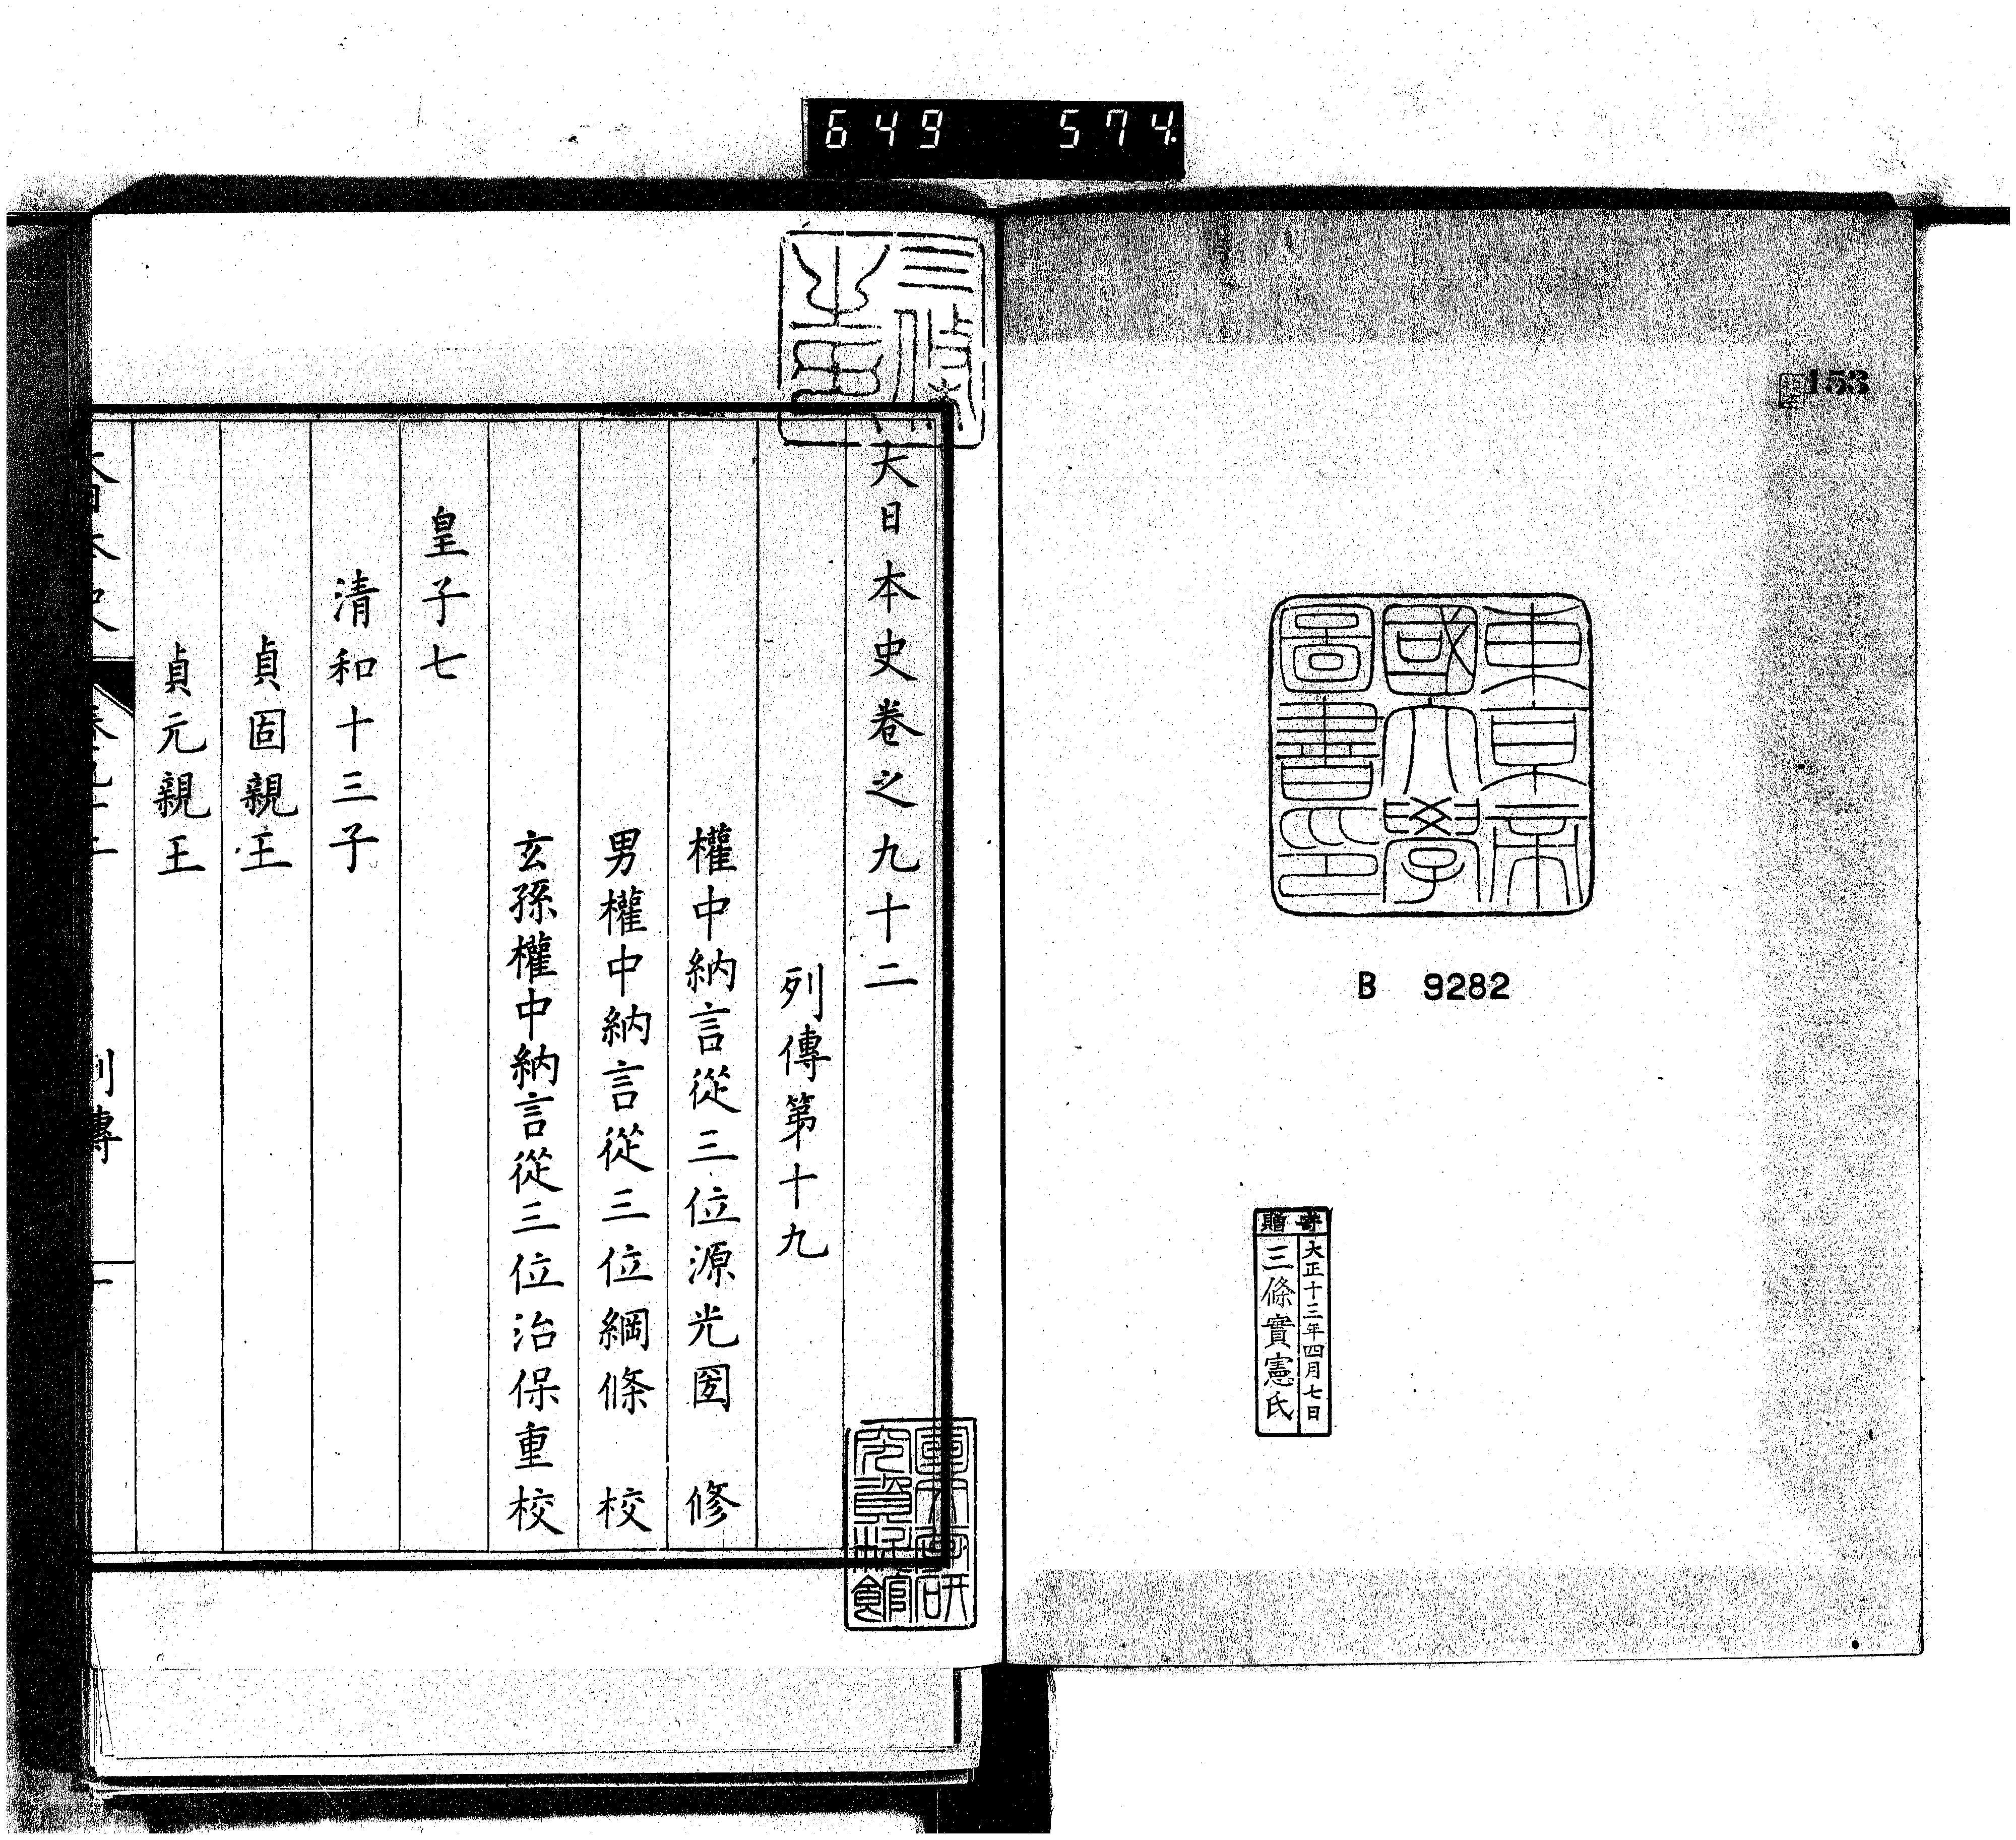 649 574
153
東京帝
國大學
圖書印
B 9282
寄贈
大正十三年四月七日
三條實憲氏
大日本史卷之九十二
列傳第十九
權中納言從三位源光圀 修
男權中納言從三位綱條 校
玄孫權中納言從三位治保重校
皇子七
清和十三子
貞固親王
貞元親王
列傳